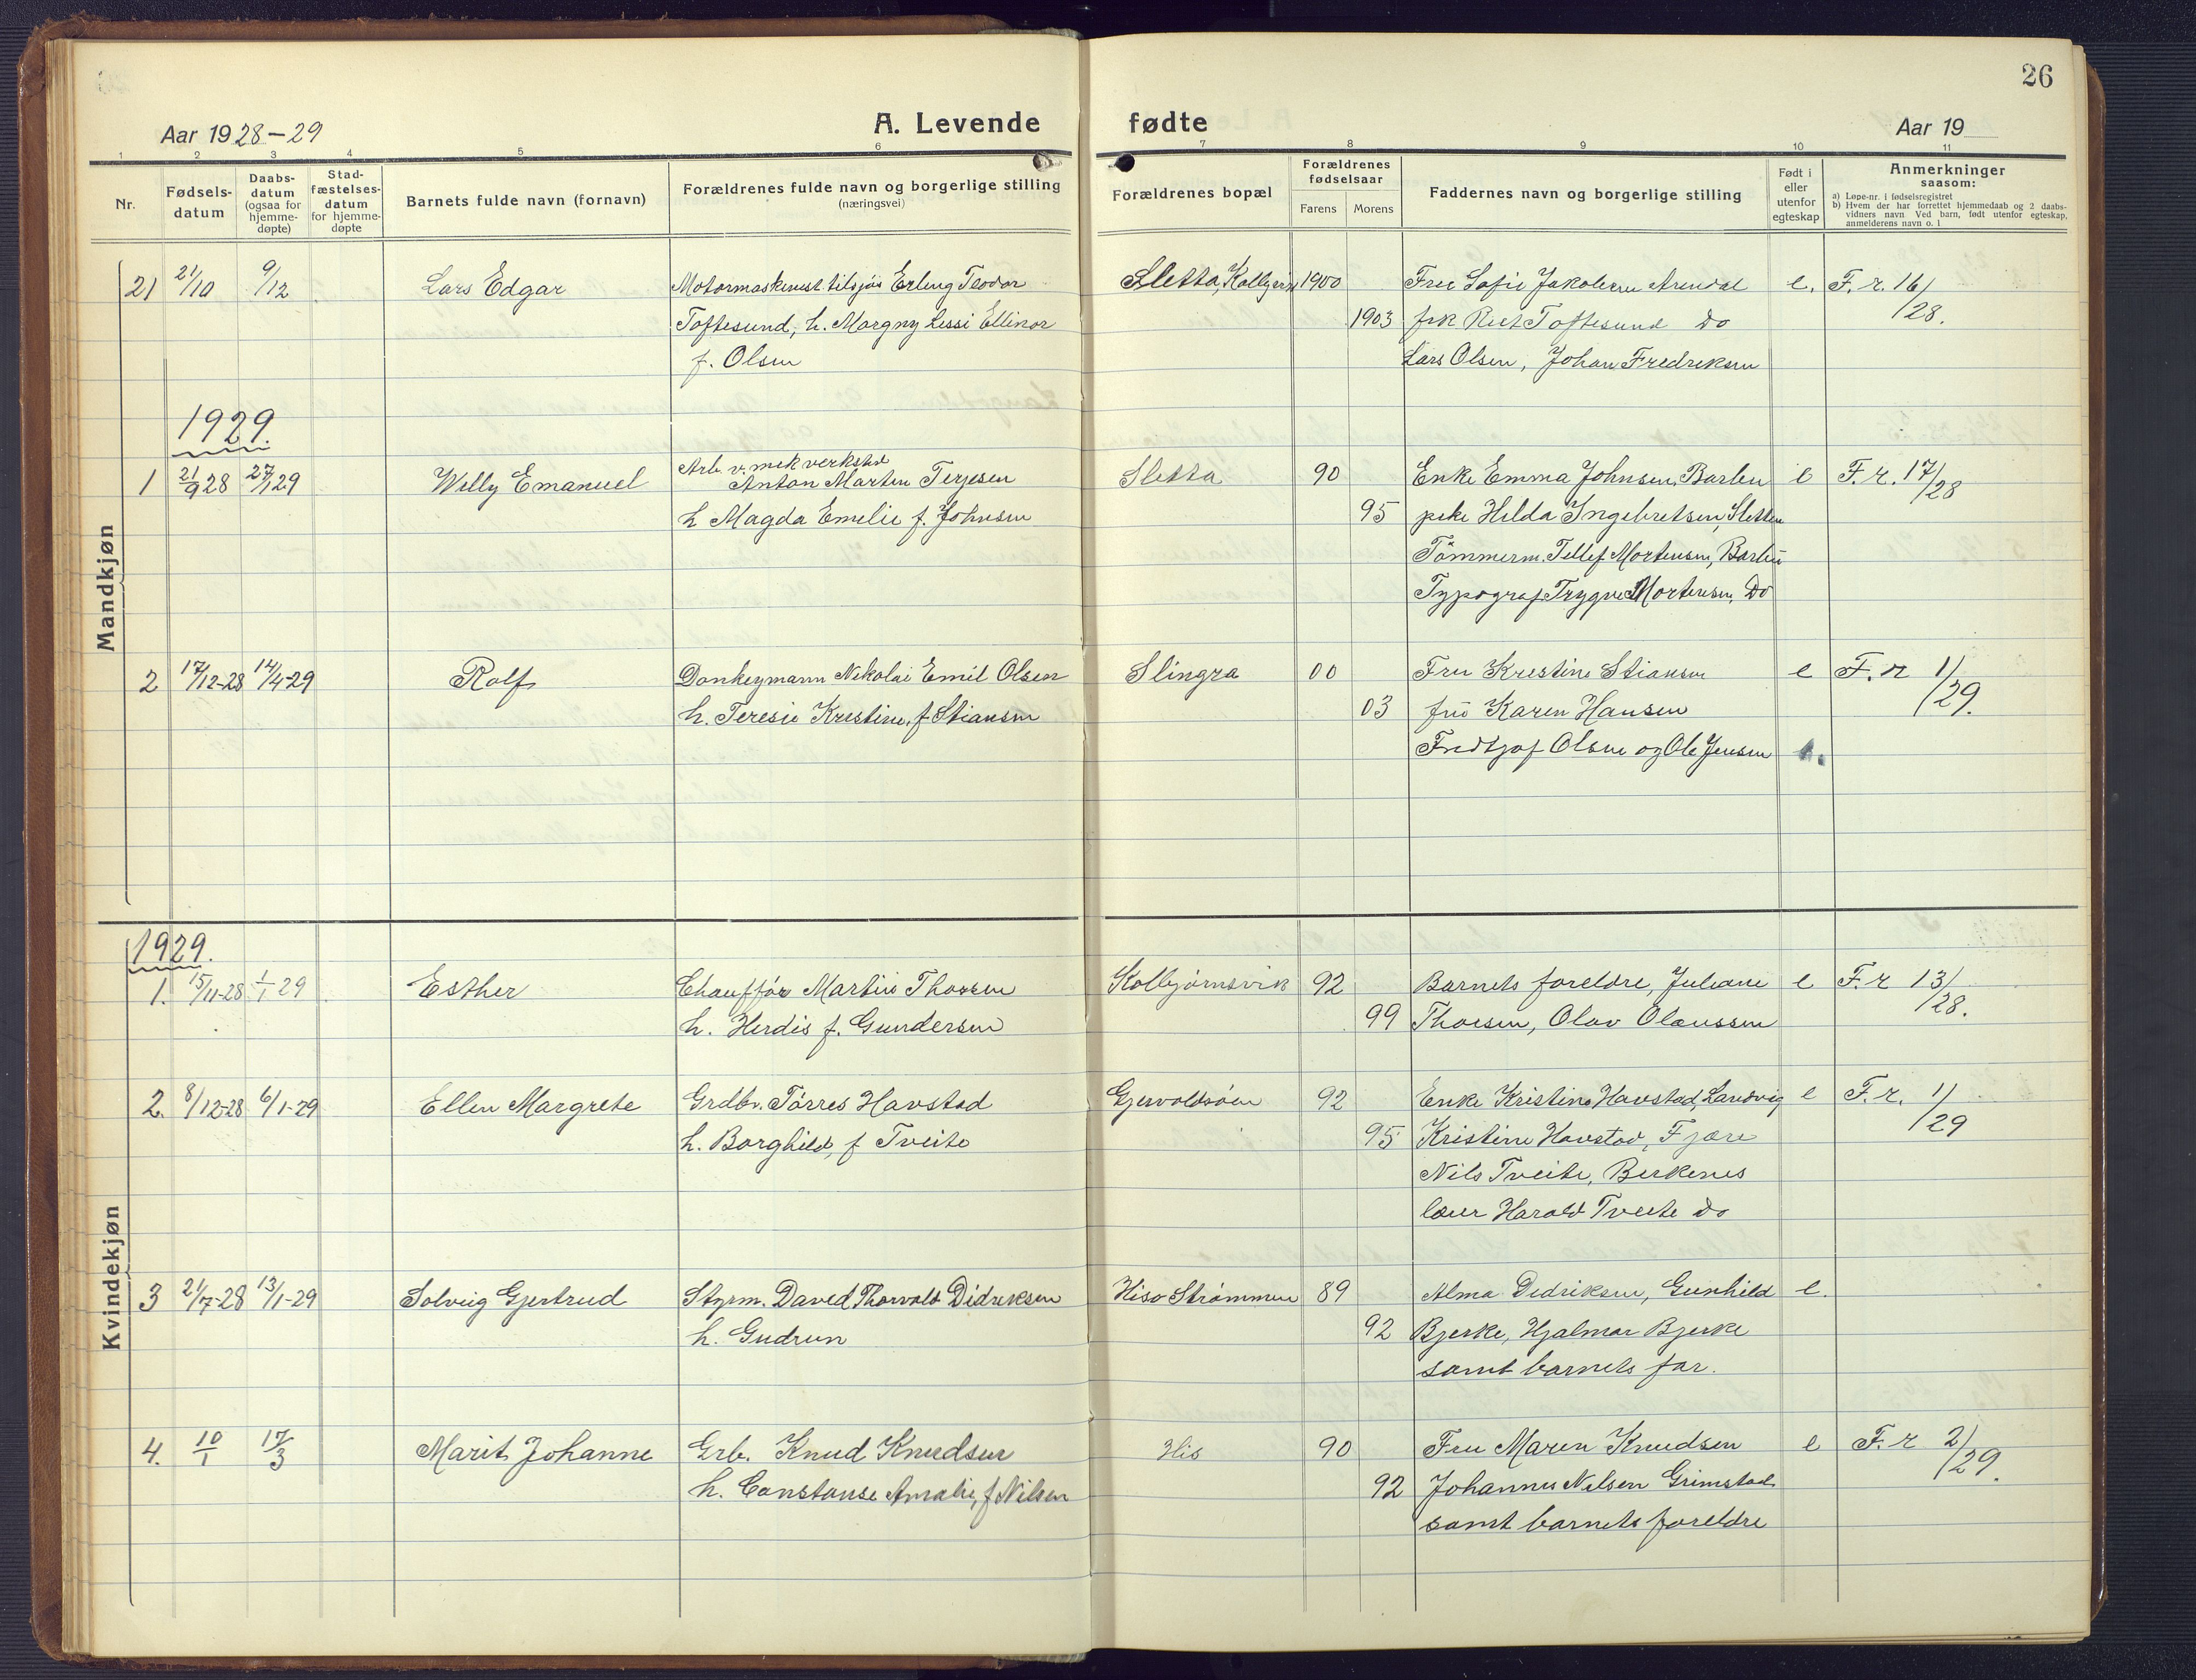 26
Aar 1928-29
A. Levende
fødte
Aar 19
1 2 3 4 5 6 7 8 9 10 11
Nr.
Fødsels-
datum
Daabs-
datum
(ogsaa for
hjemme-
døpte)
Stad-
fæstelses-
datum
for hjemme-
døpte
Barnets fulde navn (fornavn)
Forældrenes fulde navn og borgerlige stilling
(næringsvei)
Forældrenes bopæl
Forældrenes
fødselsaar
Farens Morens
Faddernes navn og borgerlige stilling
Født i
eller
utenfor
egteskap
Anmerkninger
saasom:
a) Løpe-nr. i fødselsregistret
b) Hvem der har forrettet hjemmedaab og 2 daabs-
vidners navn. Ved barn, født utenfor egteskap,
anmelderens navn o. l
Mandkjøn
21 21/10 9/12 Lars Edgar Motormaskinist tilsjøs Erling Teodor Sletta, Kolbjørn 1900 Fru Sofie Jakobsen Arendal e. F. r. 16/
Toftesund, h. Margny Lessi Ellinor 1903 frk Rut Toftesund Do 28.
f. Olsen Lars Olsen, Johan Fredriksen
1929.
Arb. v. mek verksted
1 21/9 28 27/1 29 Willy Emanuel Anton Martin Terjesen Sletta 90 Enke Emma Johnsen, Barbu e F. r. 17/
h Magda Emelie f. Johnsen 95 pike Hilda Ingebretsen, Sletten 28
Tømmerm. Tellef Mortensen, Barbu
Typograf Trygve Mortensen, Do
2 17/12-28 14/4-29 Rolf Donkeymann Nikolai Emil Olsen Slingra 00 Fru Kristine Stiansen e F. r 1/
h. Teresie Kristine, f Stiansen 03 fru Karen Hansen 29.
Fredtjof Olsen og Ole Jensen
Kvindekjøn
1929.
1. 15/11-28 1/1 29 Esther Chauffør Martin Thorsen Kolbjørnsvik 92 Barnets foreldre, Juliane e F. r 13/
h. Herdis f. Gundersen 99 Thorsen, Olav Olaussen 28.
2. 8/12-28 6/1-29 Ellen Margrete Grdbr. Tørres Havstad Gjervoldsøen 92 Enke Kristine Havstad, Landvig e F. r. 1/
h. Borghild, f Tveite 95 Kristine Havstad, Fjære 29
Nils Tveite, Birkenes
lærer Harald Tveite do
3 21/7-28 13/1-29 Solveig Gjertrud Styrm. David Thorvald Didriksen Hisø Strømmen 89 Alma Didriksen, Gunhild e.
h. Gudrun 92 Bjerke, Hjalmar Bjerke
samt barnets far.
4. 10/1 17/3 Marit Johanne Grb. Knud Knudsen His 90 Fru Maren Knudsen e F. r 2/
h. Constanse Amalie, f Nilsen 92 Johannes Nilsen Grimstad 29.
samt barnets foreldre